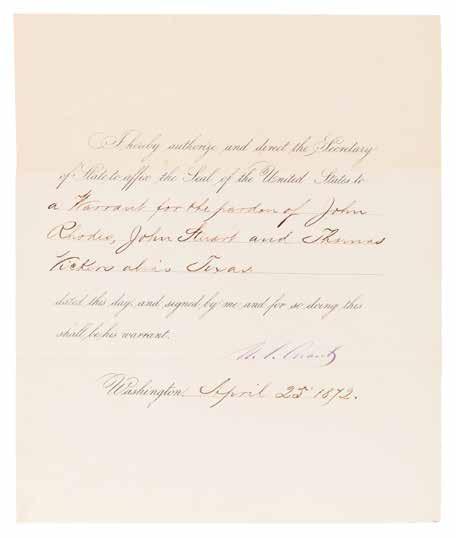 I hereby authorize and direct the Secretary
of State to affix the Seal of the United States to
a Warrant for the pardon of John
Rhodes, John Stuart and Thomas
Vickers alias Texas
dated this day, and signed by me and for so doing this
shall be his warrant.
U.S. Grant
Washington, April 25 1872.